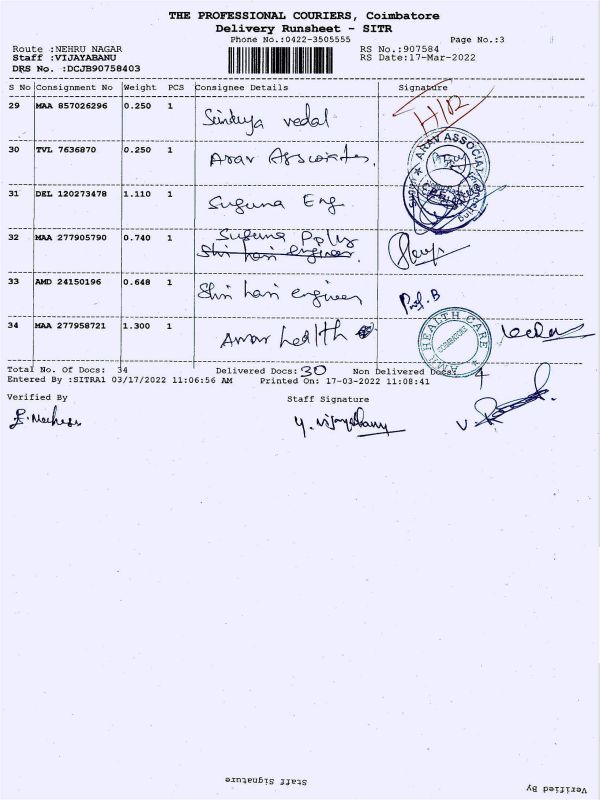 THE PROFESSIONAL COURIERS, Coimbatore
Delivery Runsheet - SITR
Phone No.:0422-3505555 Page No.:3
Route :NEHRU NAGAR RS No.:907584
Staff :VIJAYABANU RS Date:17-Mar-2022
DRS No. :DCJB90758403
S No Consignment No Weight PCS Consignee Details Signature
29 MAA 857026296 0.250 1
30 TVL 7636870 0.250 1 Arav Associates.
ARAV ASSOCIAT
31 DEL 120273478 1.110 1 Suguna Eng
32 MAA 277905790 0.740 1 Suguna Poly
Shri hari engineer
33 AMD 24150196 0.648 1 Shri hari engineer
34 MAA 277958721 1.300 1 Amar health
HEALTH CARE
COIMBATORE
Total No. Of Docs: 34 Delivered Docs: 30 Non Delivered Docs: 4
Entered By :SITRA1 03/17/2022 11:06:56 AM Printed On: 17-03-2022 11:08:41
Verified By Staff Signature
Y. Vijayabanu
Staff Signature Verified By